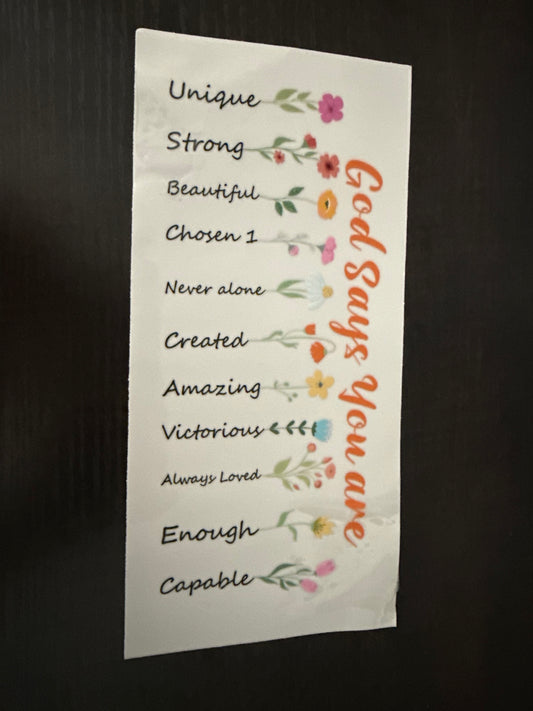 God Says You are
Unique
Strong
Beautiful
Chosen 1
Never alone
Created
Amazing
Victorious
Always Loved
Enough
Capable